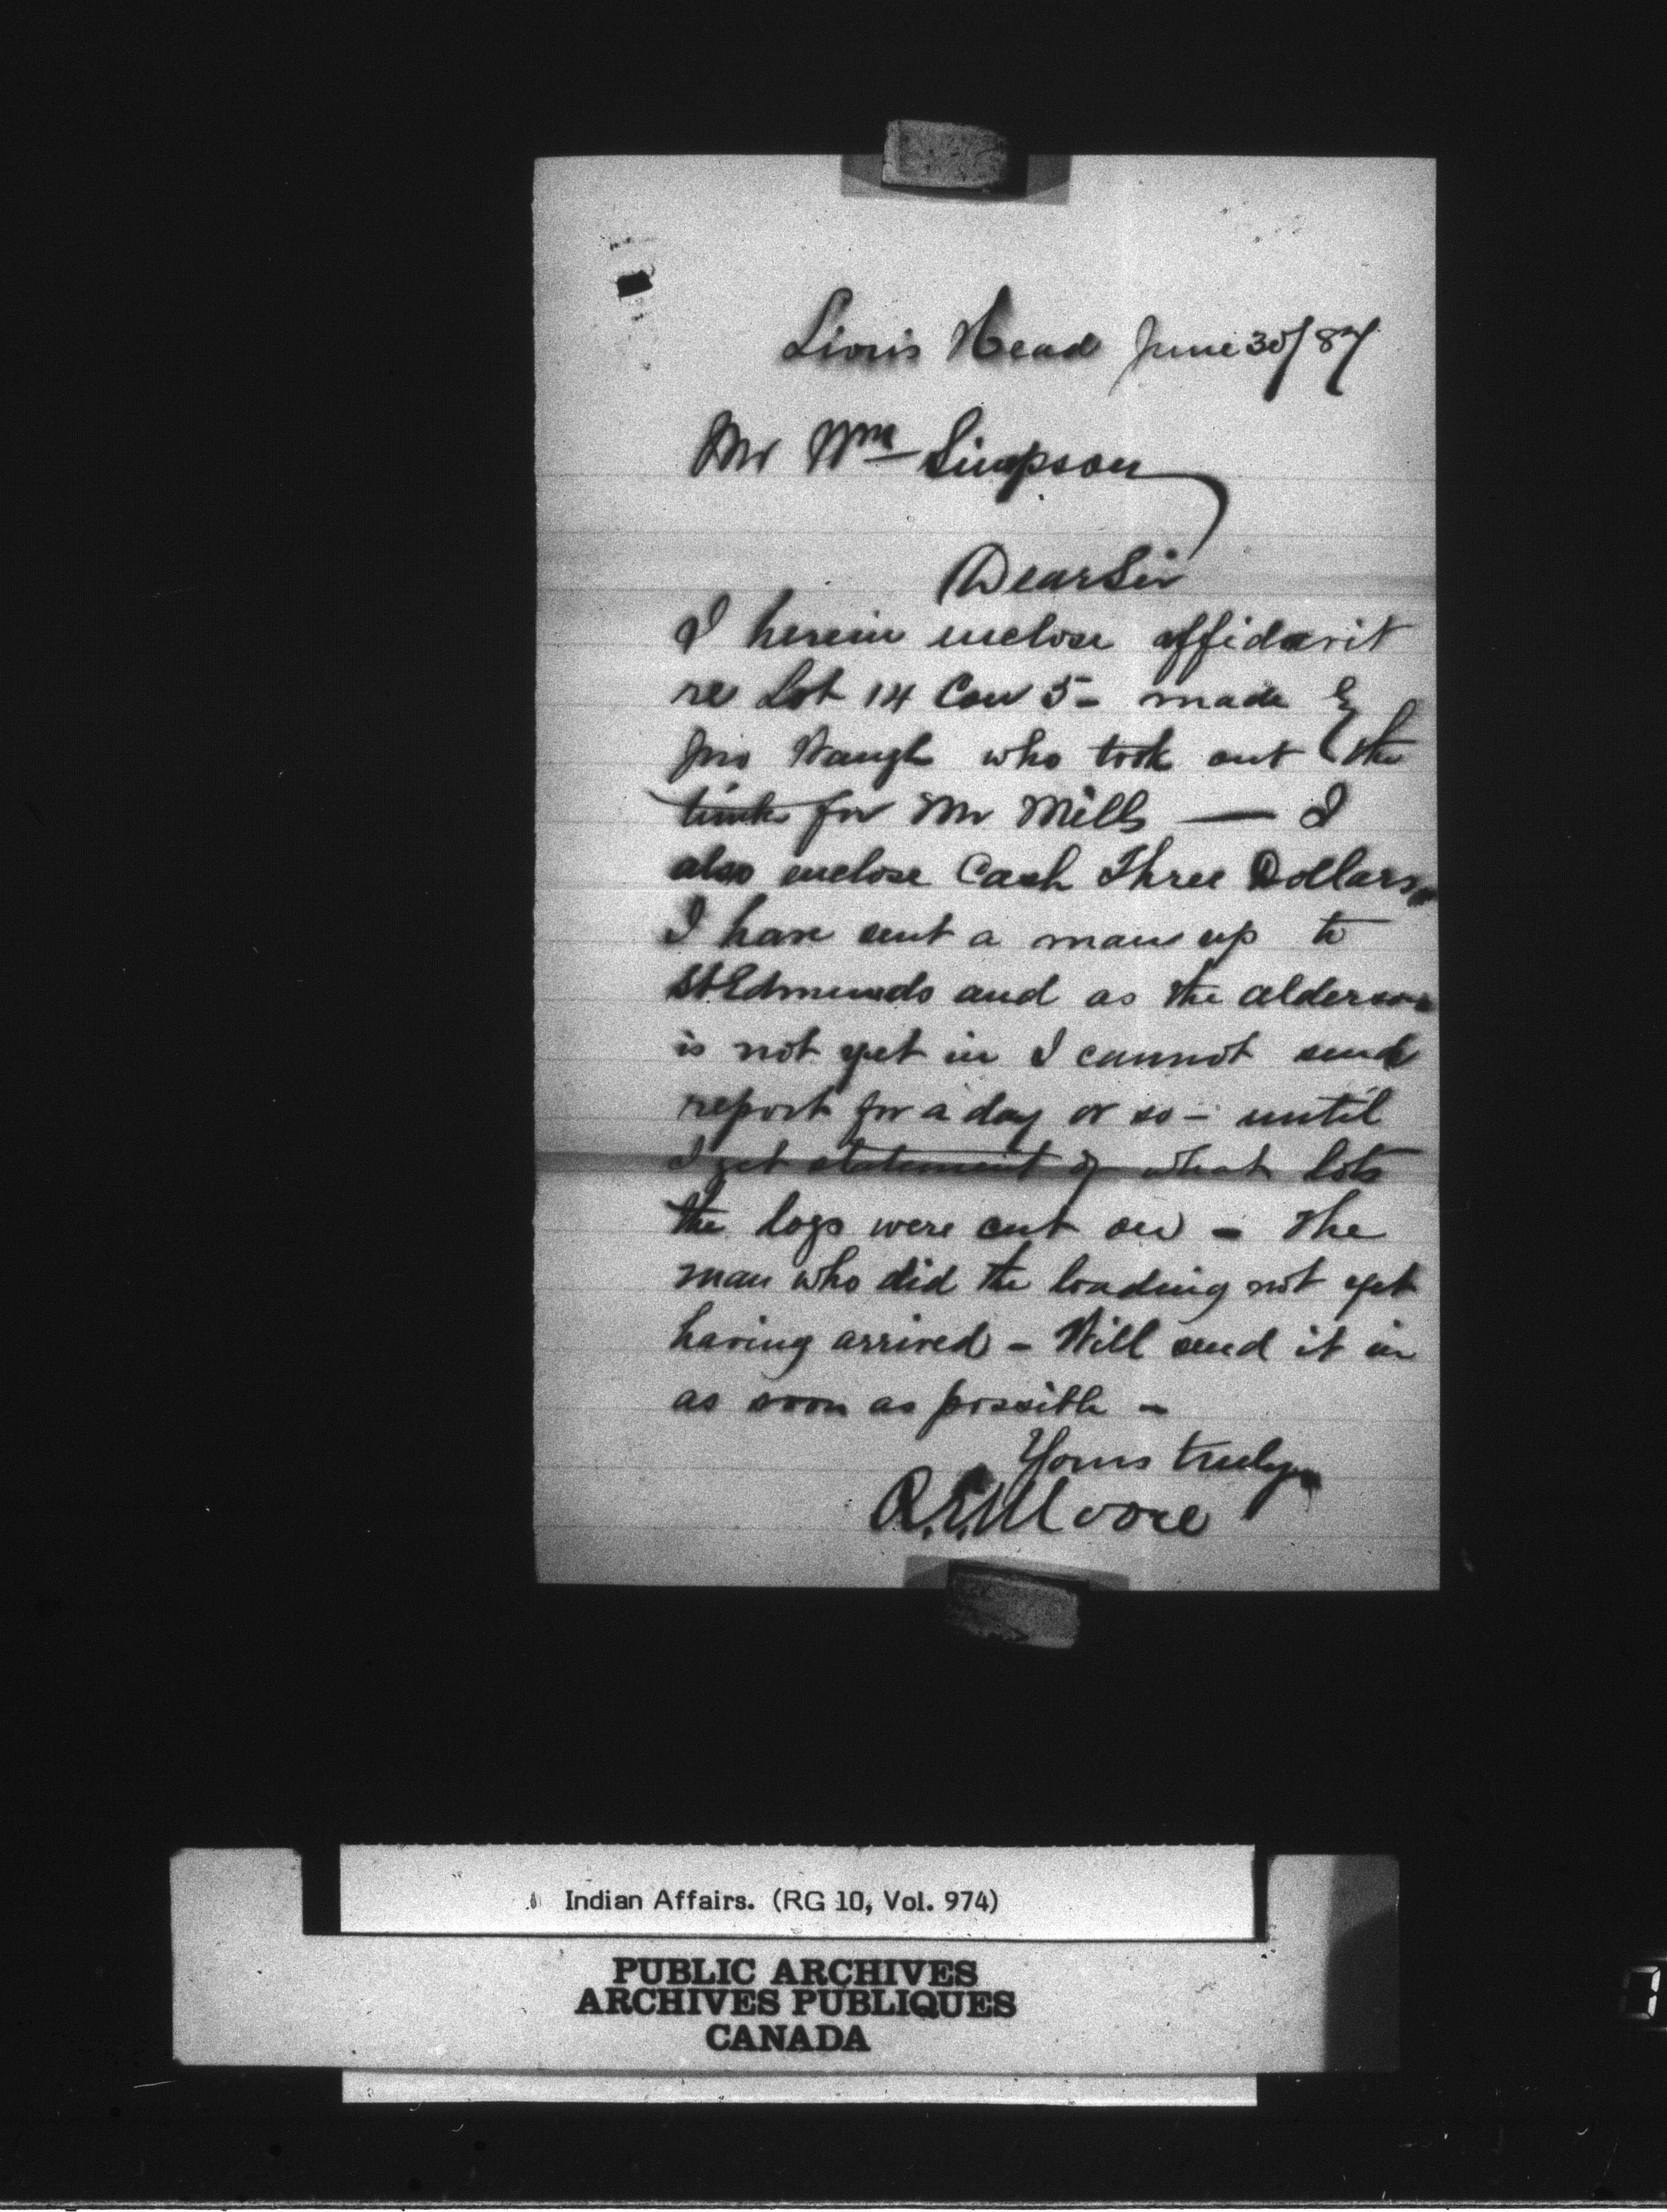 Lion's Head June 30/87
Mr Wm Simpson
Dear Sir
I herein enclose affidavit
re Lot 14 Con 5 - made by
Jno Waugh who took out the
for Mr Mills — I
also enclose Cash Three Dollars
I have sent a man up to
St Edmunds and as the alderson
is not yet in I cannot send
report for a day or so - until
I get statement of what lots
the logs were cut on - The
man who did the loading not yet
having arrived - Will send it in
as soon as possible -
Yours truly
Moore
Indian Affairs. (RG 10, Vol. 974)
PUBLIC ARCHIVES
ARCHIVES PUBLIQUES
CANADA